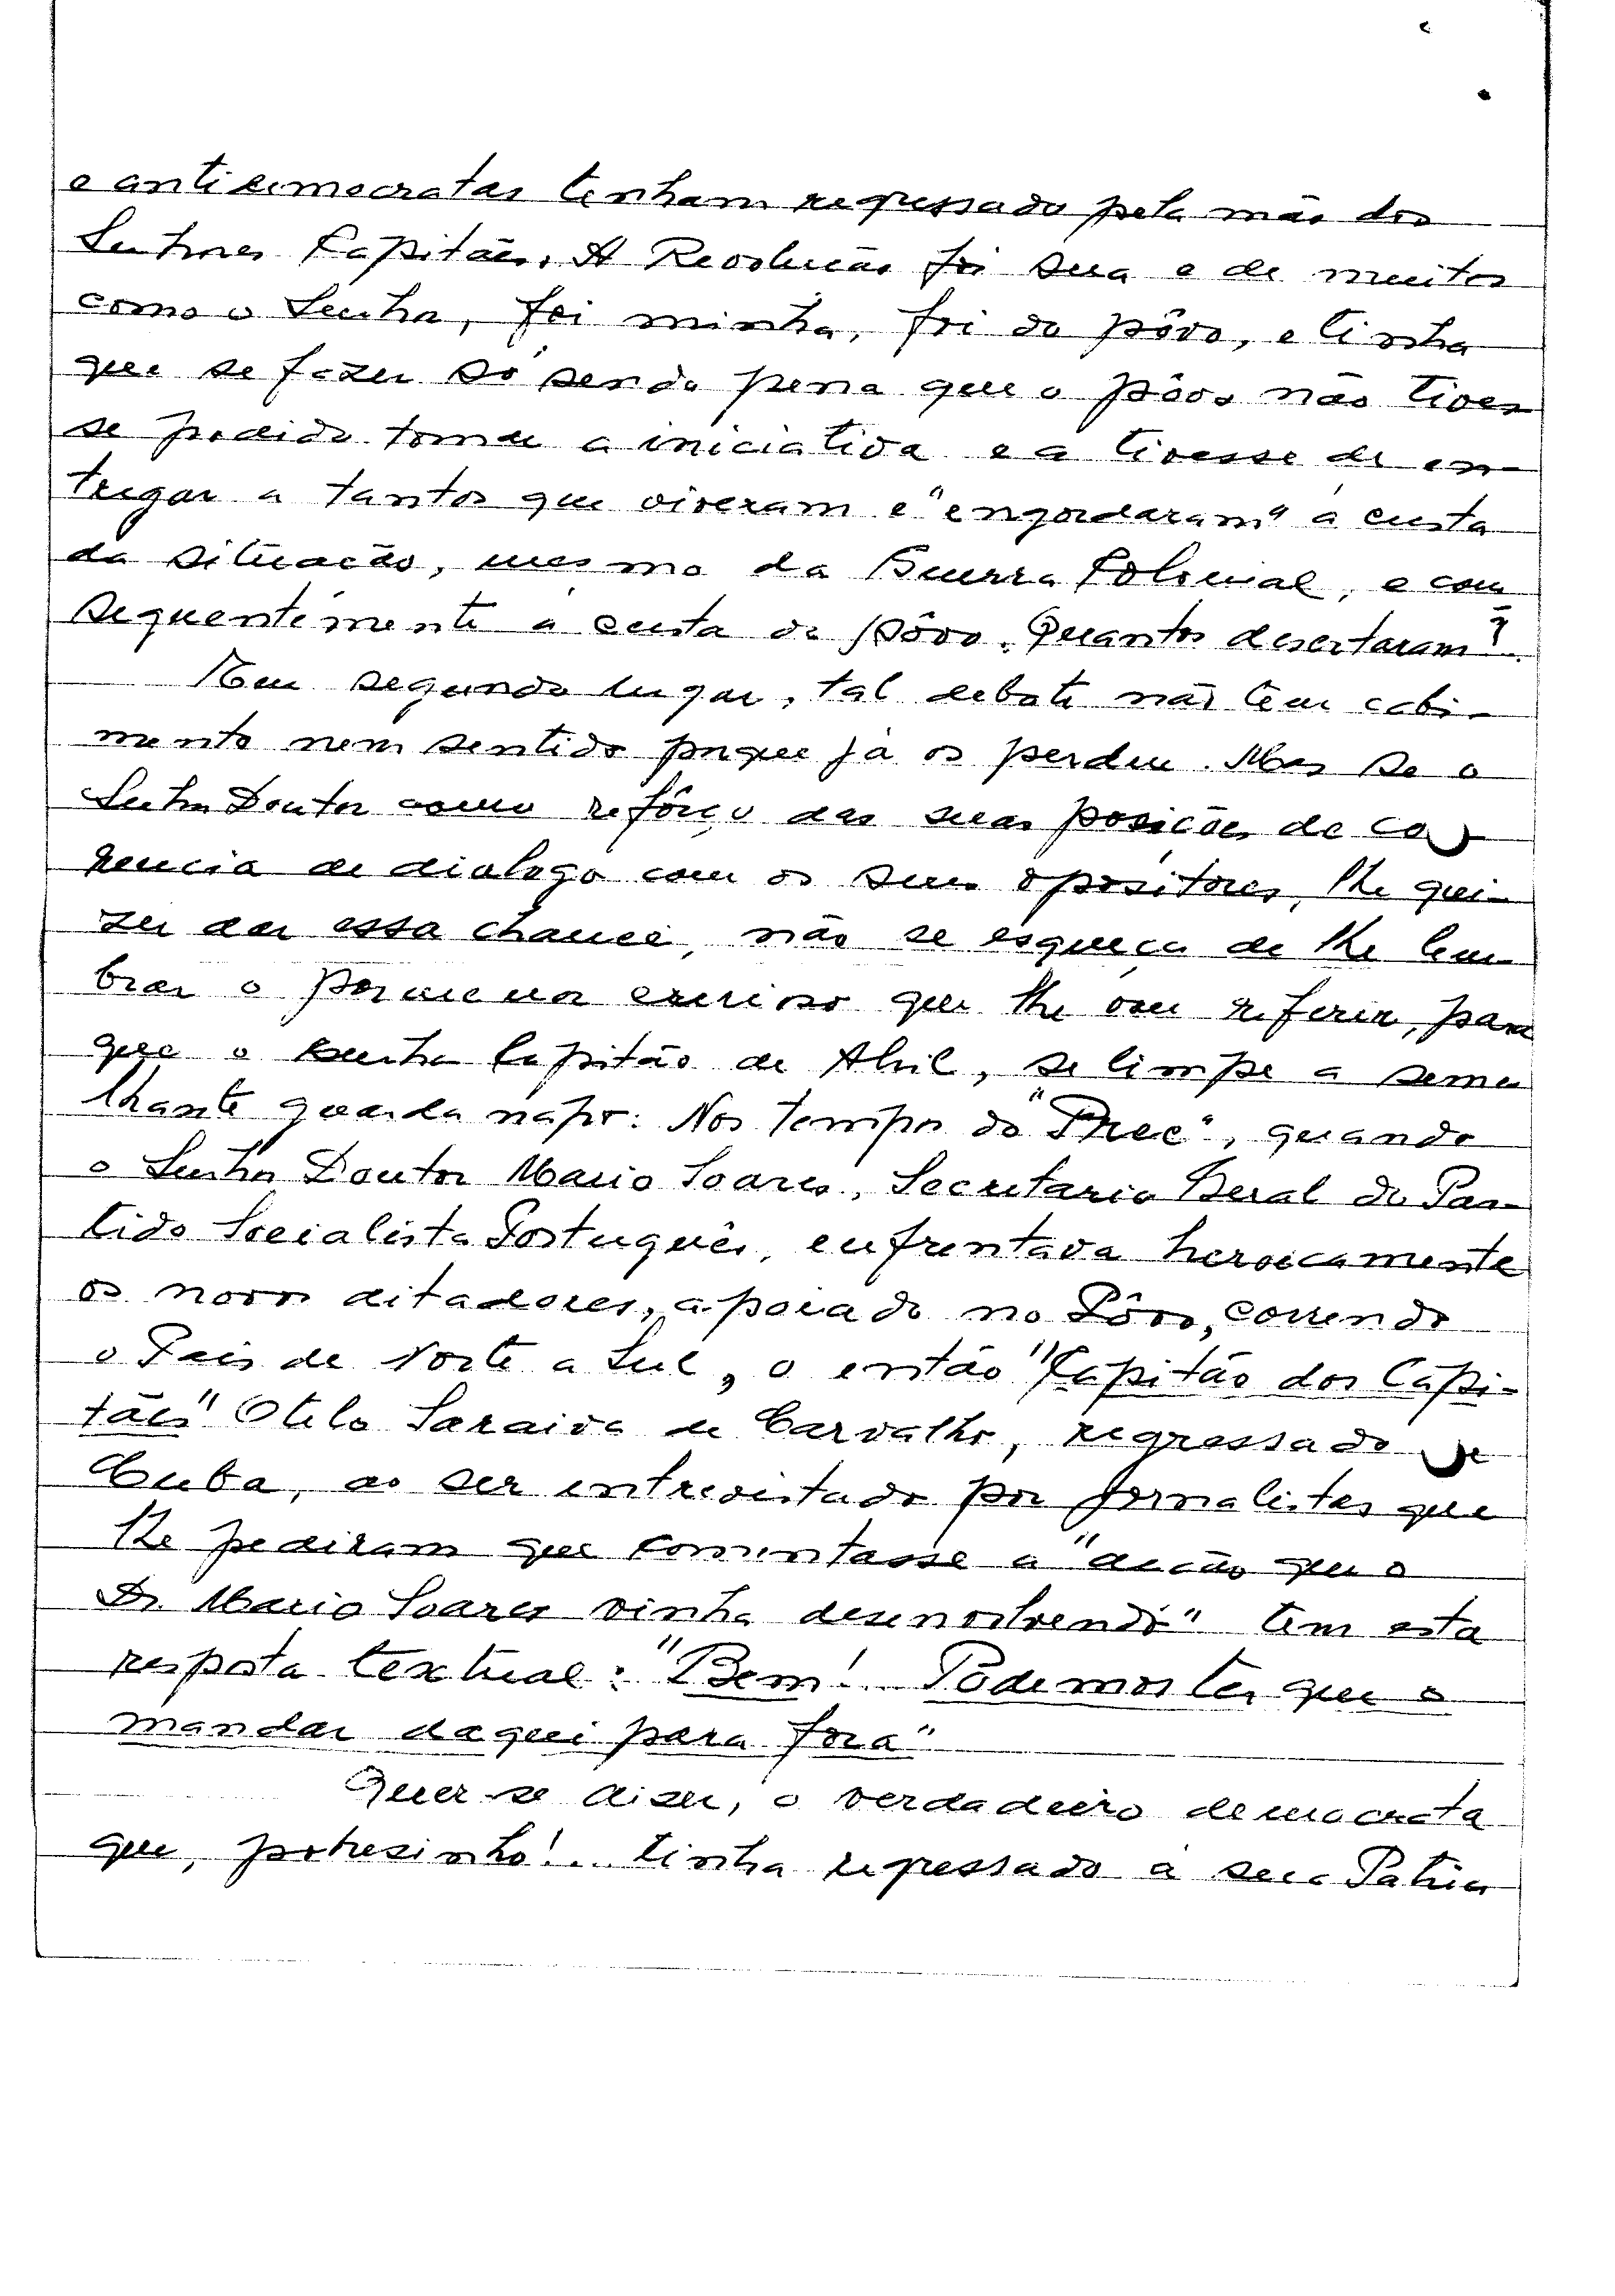 e antidemocratas tenham regressado pela mão dos
Senhores Capitães. A Revolução foi sua e de muitos
como o Senhor, foi minha, foi do pôvo, e tinha
que se fazer só sendo pena que o pôvo não tives
se podido tomar a iniciativa e a tivesse de en-
tregar a tantos que viveram e "engordaram" á custa
da situacão, mesmo da Guerra Colonial, e con
sequentemente á custa do pôvo. Quantos desertaram?..
Em segundo lugar, tal debate não tem cabi-
mento nem sentido porque já os perdeu. Mas se o
Senhor Doutor como refôrço das suas posicões de coe
rencia de dialogo com os seus opositores, lhe qui-
zer dar essa chance, não se esqueça de lhe lem-
brar o pormenor curioso que lhe vou referir, para
que o Senhor Capitão de Abril, se limpe a seme
lhante guardanapo: Nos tempos do "Prec", quando
o Senhor Doutor Mario Soares, Secretario Geral do Par-
tido Socialista Português, enfrentava heroicamente
os novos ditadores, apoiado no Pôvo, correndo
o Pais de Norte a Sul, o então "Capitão dos Capi-
tães" Otelo Saraiva de Carvalho, regressado de
Cuba, ao ser entrevistado por jornalistas que
lhe pediram que comentasse a "accão que o
Dr. Mario Soares vinha desenvolvendo" tem esta
resposta textual: "Bem!.. Podemos ter que o
mandar daqui para fora"
Quer-se dizer, o verdadeiro democrata
que, pobresinho!... tinha regressado á sua Patria